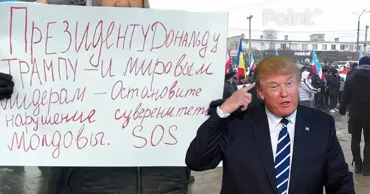 Point°
ПРЕЗИДЕНТУ ДОНАЛЬДУ
ТРАМПУ – И МИРОВЫМ
ЛИДЕРАМ – ОСТАНОВИТЕ
НАРУШЕНИЕ СУВЕРЕНИТЕТА
МОЛДОВЫ. SOS